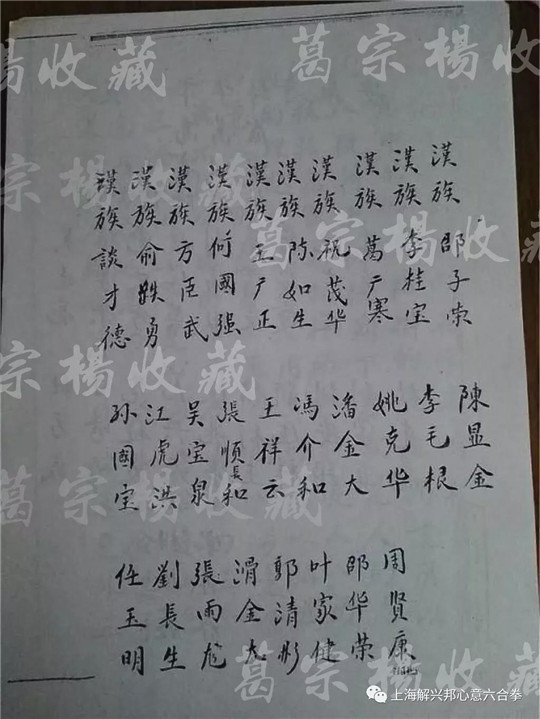 漢族 邵子荣
漢族 李桂宝
漢族 萬广寒
漢族 祝茂华
漢族 陈如生
漢族 王广正
漢族 何國强
漢族 方臣武
漢族 俞跌勇
漢族 談才德
陳显金
李毛根
姚克华
潘金大
馮介和
王祥云
張順長和
吴宝泉
江虎洪
孙國宝
周賢康
邵华荣
叶家健
郭清彤
滑金
張雨
劉長生
任玉明
葛宗楊收藏
葛宗楊收藏
葛宗楊收藏
葛宗楊收藏
葛宗楊收藏
上海解兴邦心意六合拳